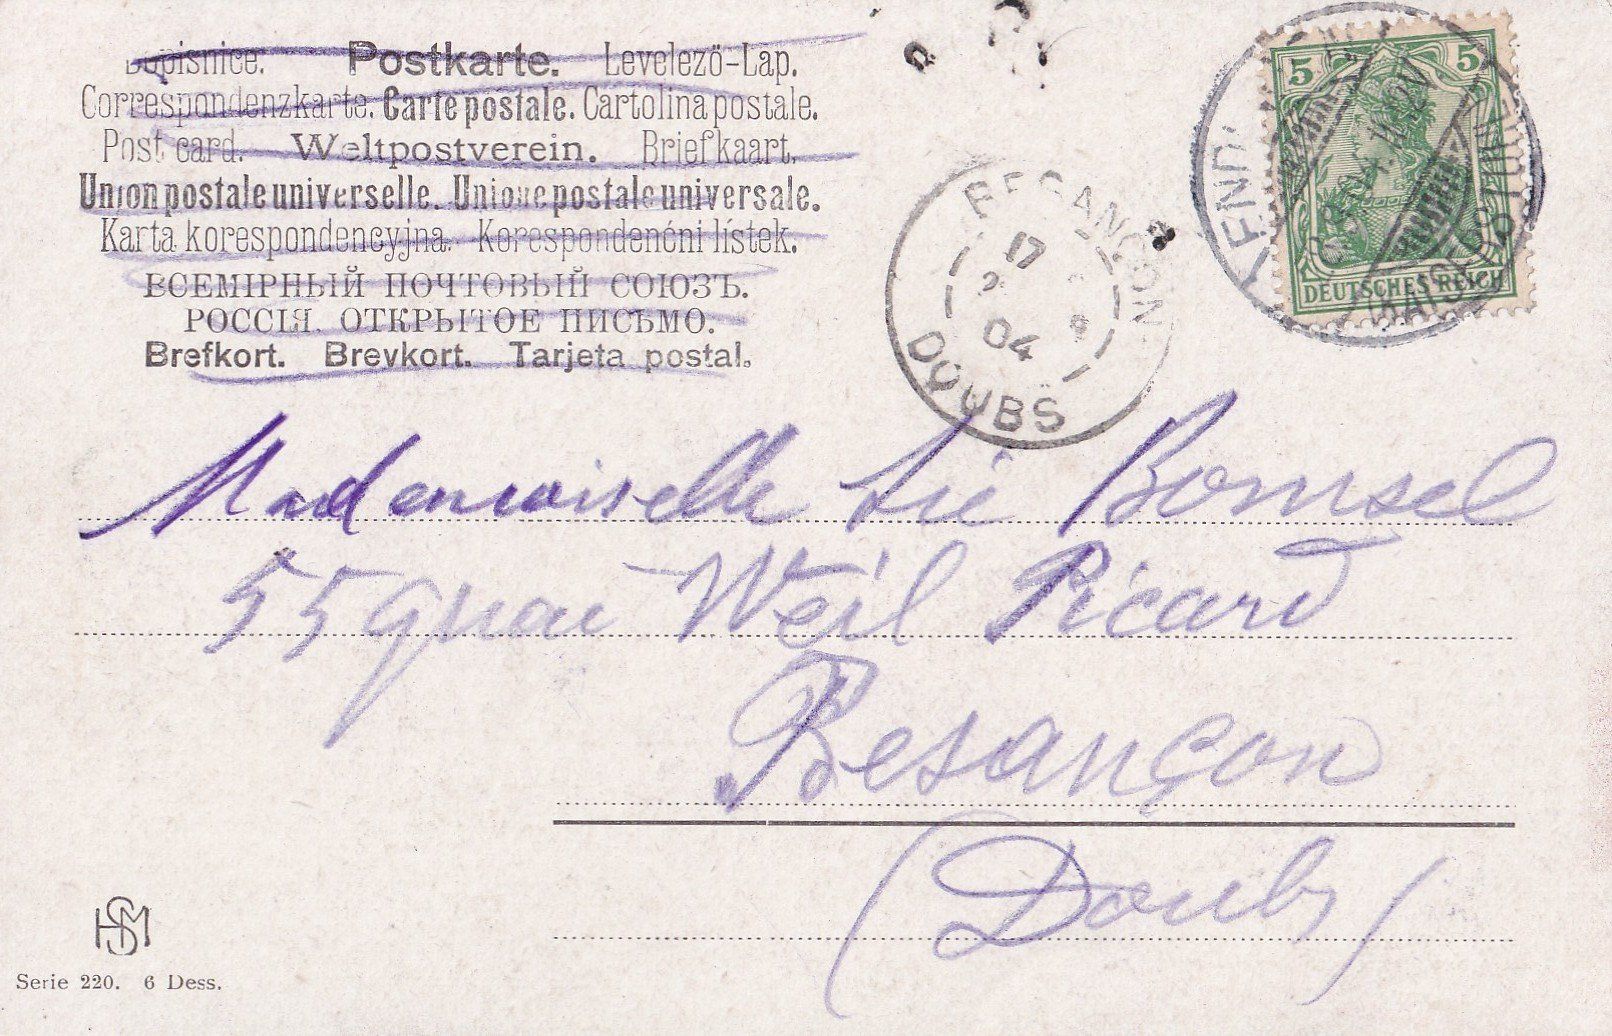 Dopisnice. Postkarte. Levelező-Lap.
Correspondenzkarte. Carte postale. Cartolina postale.
Post card. Weltpostverein. Briefkaart.
Union postale universelle. Unione postale universale.
Karta korespondencyjna. Korespondenční lístek.
ВСЕМІРНЫЙ ПОЧТОВЫЙ СОЮЗЪ.
РОССІЯ. ОТКРЫТОЕ ПИСЬМО.
Brefkort. Brevkort. Tarjeta postal.
5 5
DEUTSCHES REICH
BESANÇON
17
04
DOUBS
Mademoiselle Lié Bomsel
55 quai Weil Picard
Besançon
(Doubs)
HSM
Serie 220. 6 Dess.